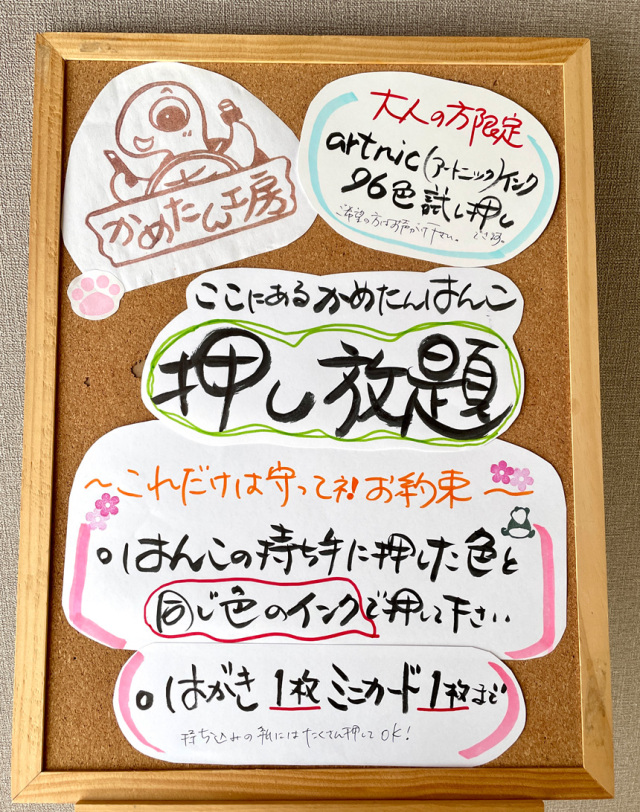 かめたん工房
大人の方限定
artnic(アートニック)インク
96色試し押し
希望の方はお声がけ下さい。できます。
ここにあるかめたんはんこ
押し放題
～これだけは守ってネ!お約束～
○はんこの持ち手に押した色と
同じ色のインクで押して下さい..
○はがき1枚ミニカード1枚まで
持ち込みの紙にはたくさん押してOK!